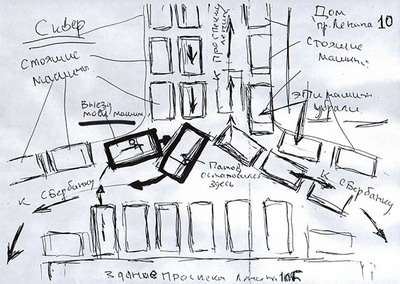 Сквер
Стоящие
машины
Выезд
моей машины
К Проспекту
Ленина
Дом
пр. Ленина 10
Стоящие
машины
эти машины
убрали
Потом
остановился
здесь
К Сбербанку
К Сбербанку
Здание Проспект Ленина